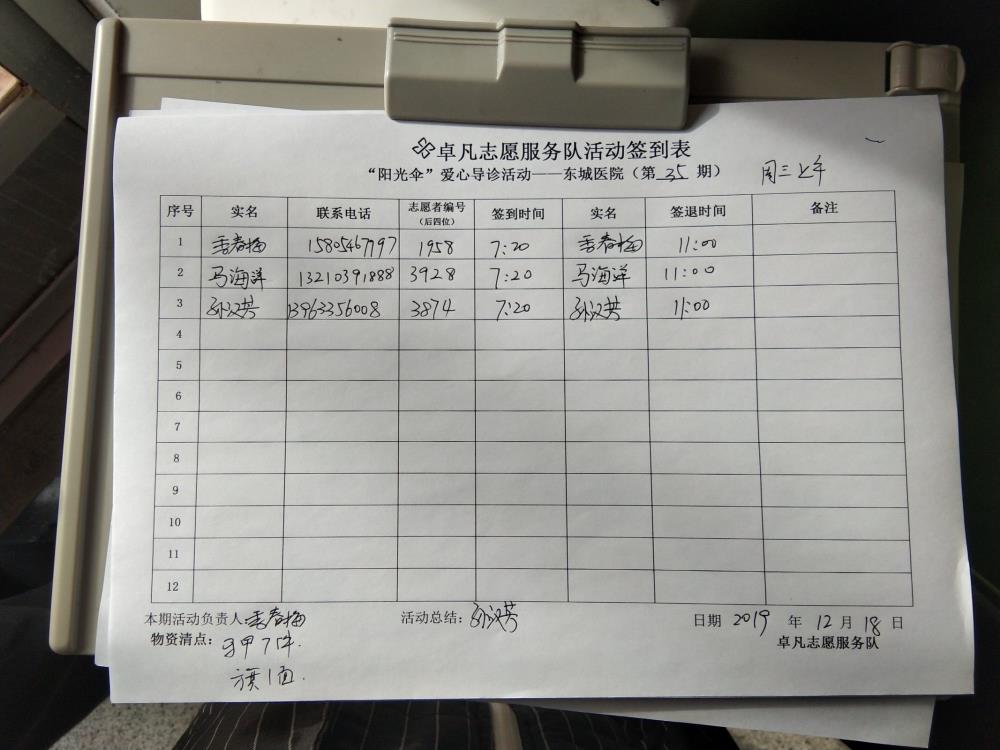 卓凡志愿服务队活动签到表
“阳光伞”爱心导诊活动——东城医院（第 35 期） 周三上午
序号 实名 联系电话 志愿者编号（后四位） 签到时间 实名 签退时间 备注
1 春梅 15805467797 1958 7:20 春梅 11:00
2 马海洋 13210391888 3928 7:20 马海洋 11:00
3 孙汉芳 13963356008 3874 7:20 孙汉芳 11:00
4
5
6
7
8
9
10
11
12
本期活动负责人: 春梅 活动总结: 孙汉芳 日期 2019 年 12 月 18 日
物资清点: 马甲7件. 卓凡志愿服务队
旗1面.